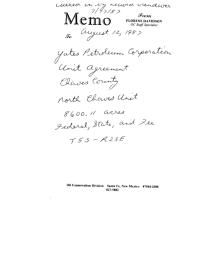 Memo
From
FLORENE DAVIDSON
OC Staff Specialist
To August 12, 1987
Yates Petroleum Corporation
Unit Agreement
Chaves County
North Chaves Unit
8600.11 acres
Federal, State, and Fee
T5S-R25E
Oil Conservation Division Santa Fe, New Mexico 87504-2088
827-5802